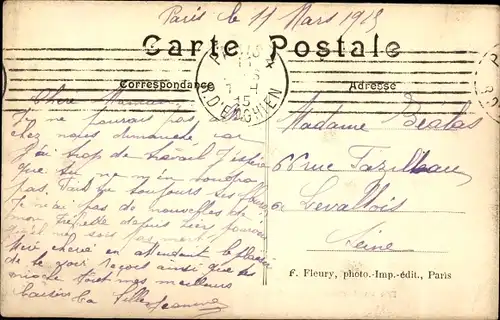 Paris le 11 Mars 1915
Carte Postale
Correspondance
Adresse
PARIS
15
D'ENGHIEN
Chère Maman
Je ne pourrais pas
chez nous dimanche car
J'ai trop de travail J'espère
que tu ne m'en voudras
pas. toujours
Je n'ai pas de nouvelles de
mon depuis hier pourvu
qu'il ne soit pas mort
Mère chérie en attendant le plaisir
de te voir reçois ainsi que
tout mes meilleurs
baisers Ta fille Jeanne
Madame Bealas
66 rue Fazilleau
Levallois
Seine
F. Fleury, photo.-Imp.-édit., Paris